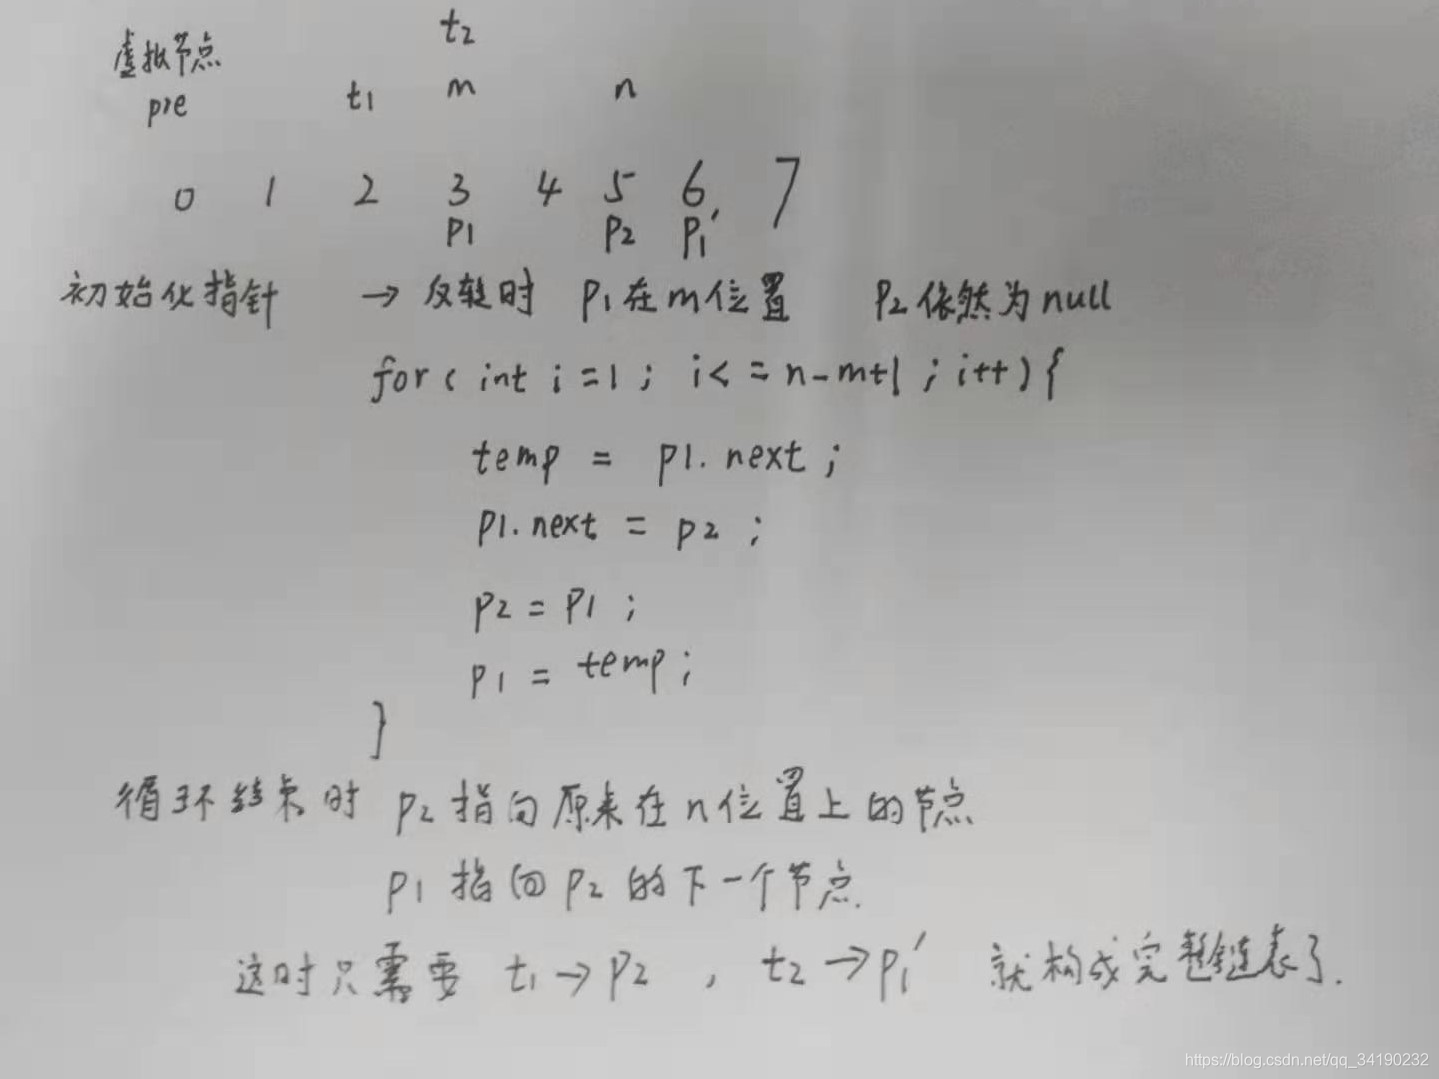 t2
虚拟节点
pre t1 m n
0 1 2 3 4 5 6 7
p1 p2 p1'
初始化指针 → 反转时 p1在m位置 p2依然为null
for( int i=1; i<=n-m+1; i++){
temp = p1.next;
p1.next = p2;
p2=p1;
p1 = temp;
}
循环结束时 p2指向原来在n位置上的节点
p1 指向p2的下一个节点.
这时只需要 t1→p2, t2→p1' 就构成完整链表了.
https://blog.csdn.net/qq_34190232